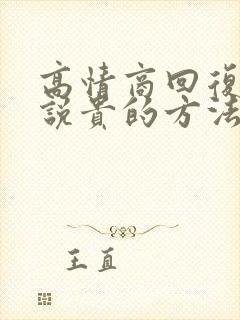 高情商回復
說貴的方法
王直